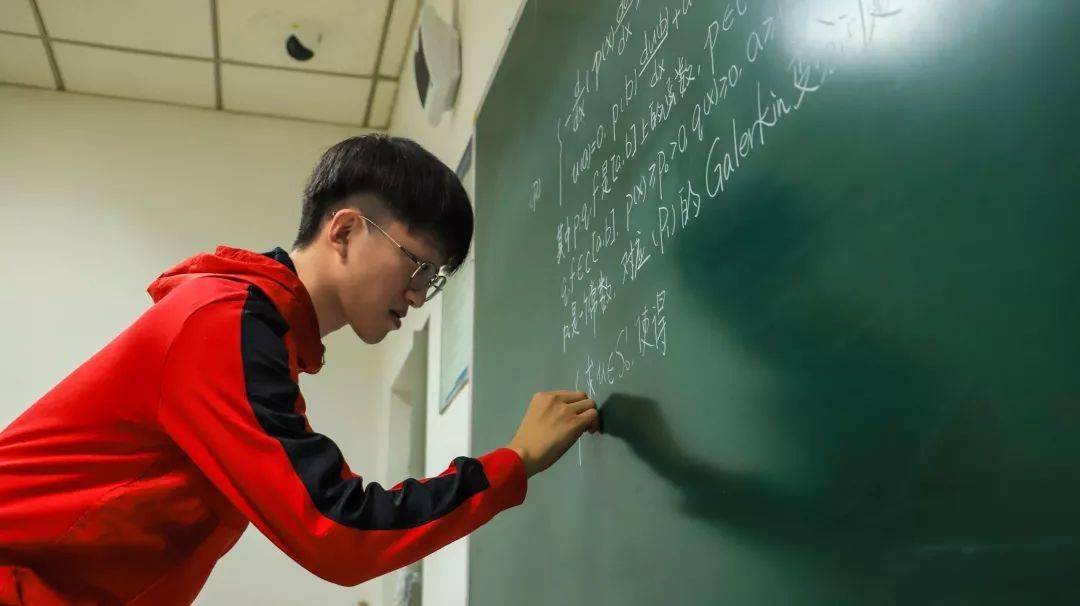 -d/dx(p(x) d
dx
(P₁) { u(a)=0, p(b) du(b)/dx + α
其中 p, q, f 是[a,b]上的函数, p∈C
q, f∈C[a,b], p(x)≥p₀>0, q(x)≥0, α≥
α是一个常数, 对应(P₁)的Galerkin变分问题
求u∈S₀¹, 使得